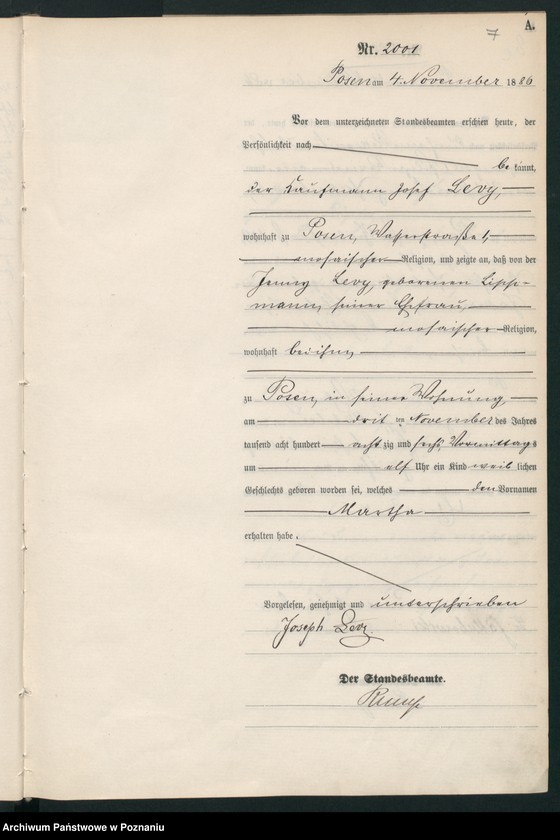 7
A.
Nr. 2001
Posen am 4. November 1886
Vor dem unterzeichneten Standesbeamten erschien heute, der
Persönlichkeit nach
bekannt,
der Kaufmann Josef Levy,
wohnhaft zu Posen, Wasserstraße 1,
mosaischer Religion, und zeigte an, daß von der
Jenny Levy, geborenen Lipp-
mann, seiner Ehefrau,
mosaischer Religion,
wohnhaft bei ihm,
zu Posen, in seiner Wohnung,
am drit ten November des Jahres
tausend acht hundert acht zig und sechs, Vormittags
um elf Uhr ein Kind weib lichen
Geschlechts geboren worden sei, welches den Vornamen
Martha
erhalten habe.
Vorgelesen, genehmigt und unterschrieben
Joseph Levy.
Der Standesbeamte.
Archiwum Państwowe w Poznaniu